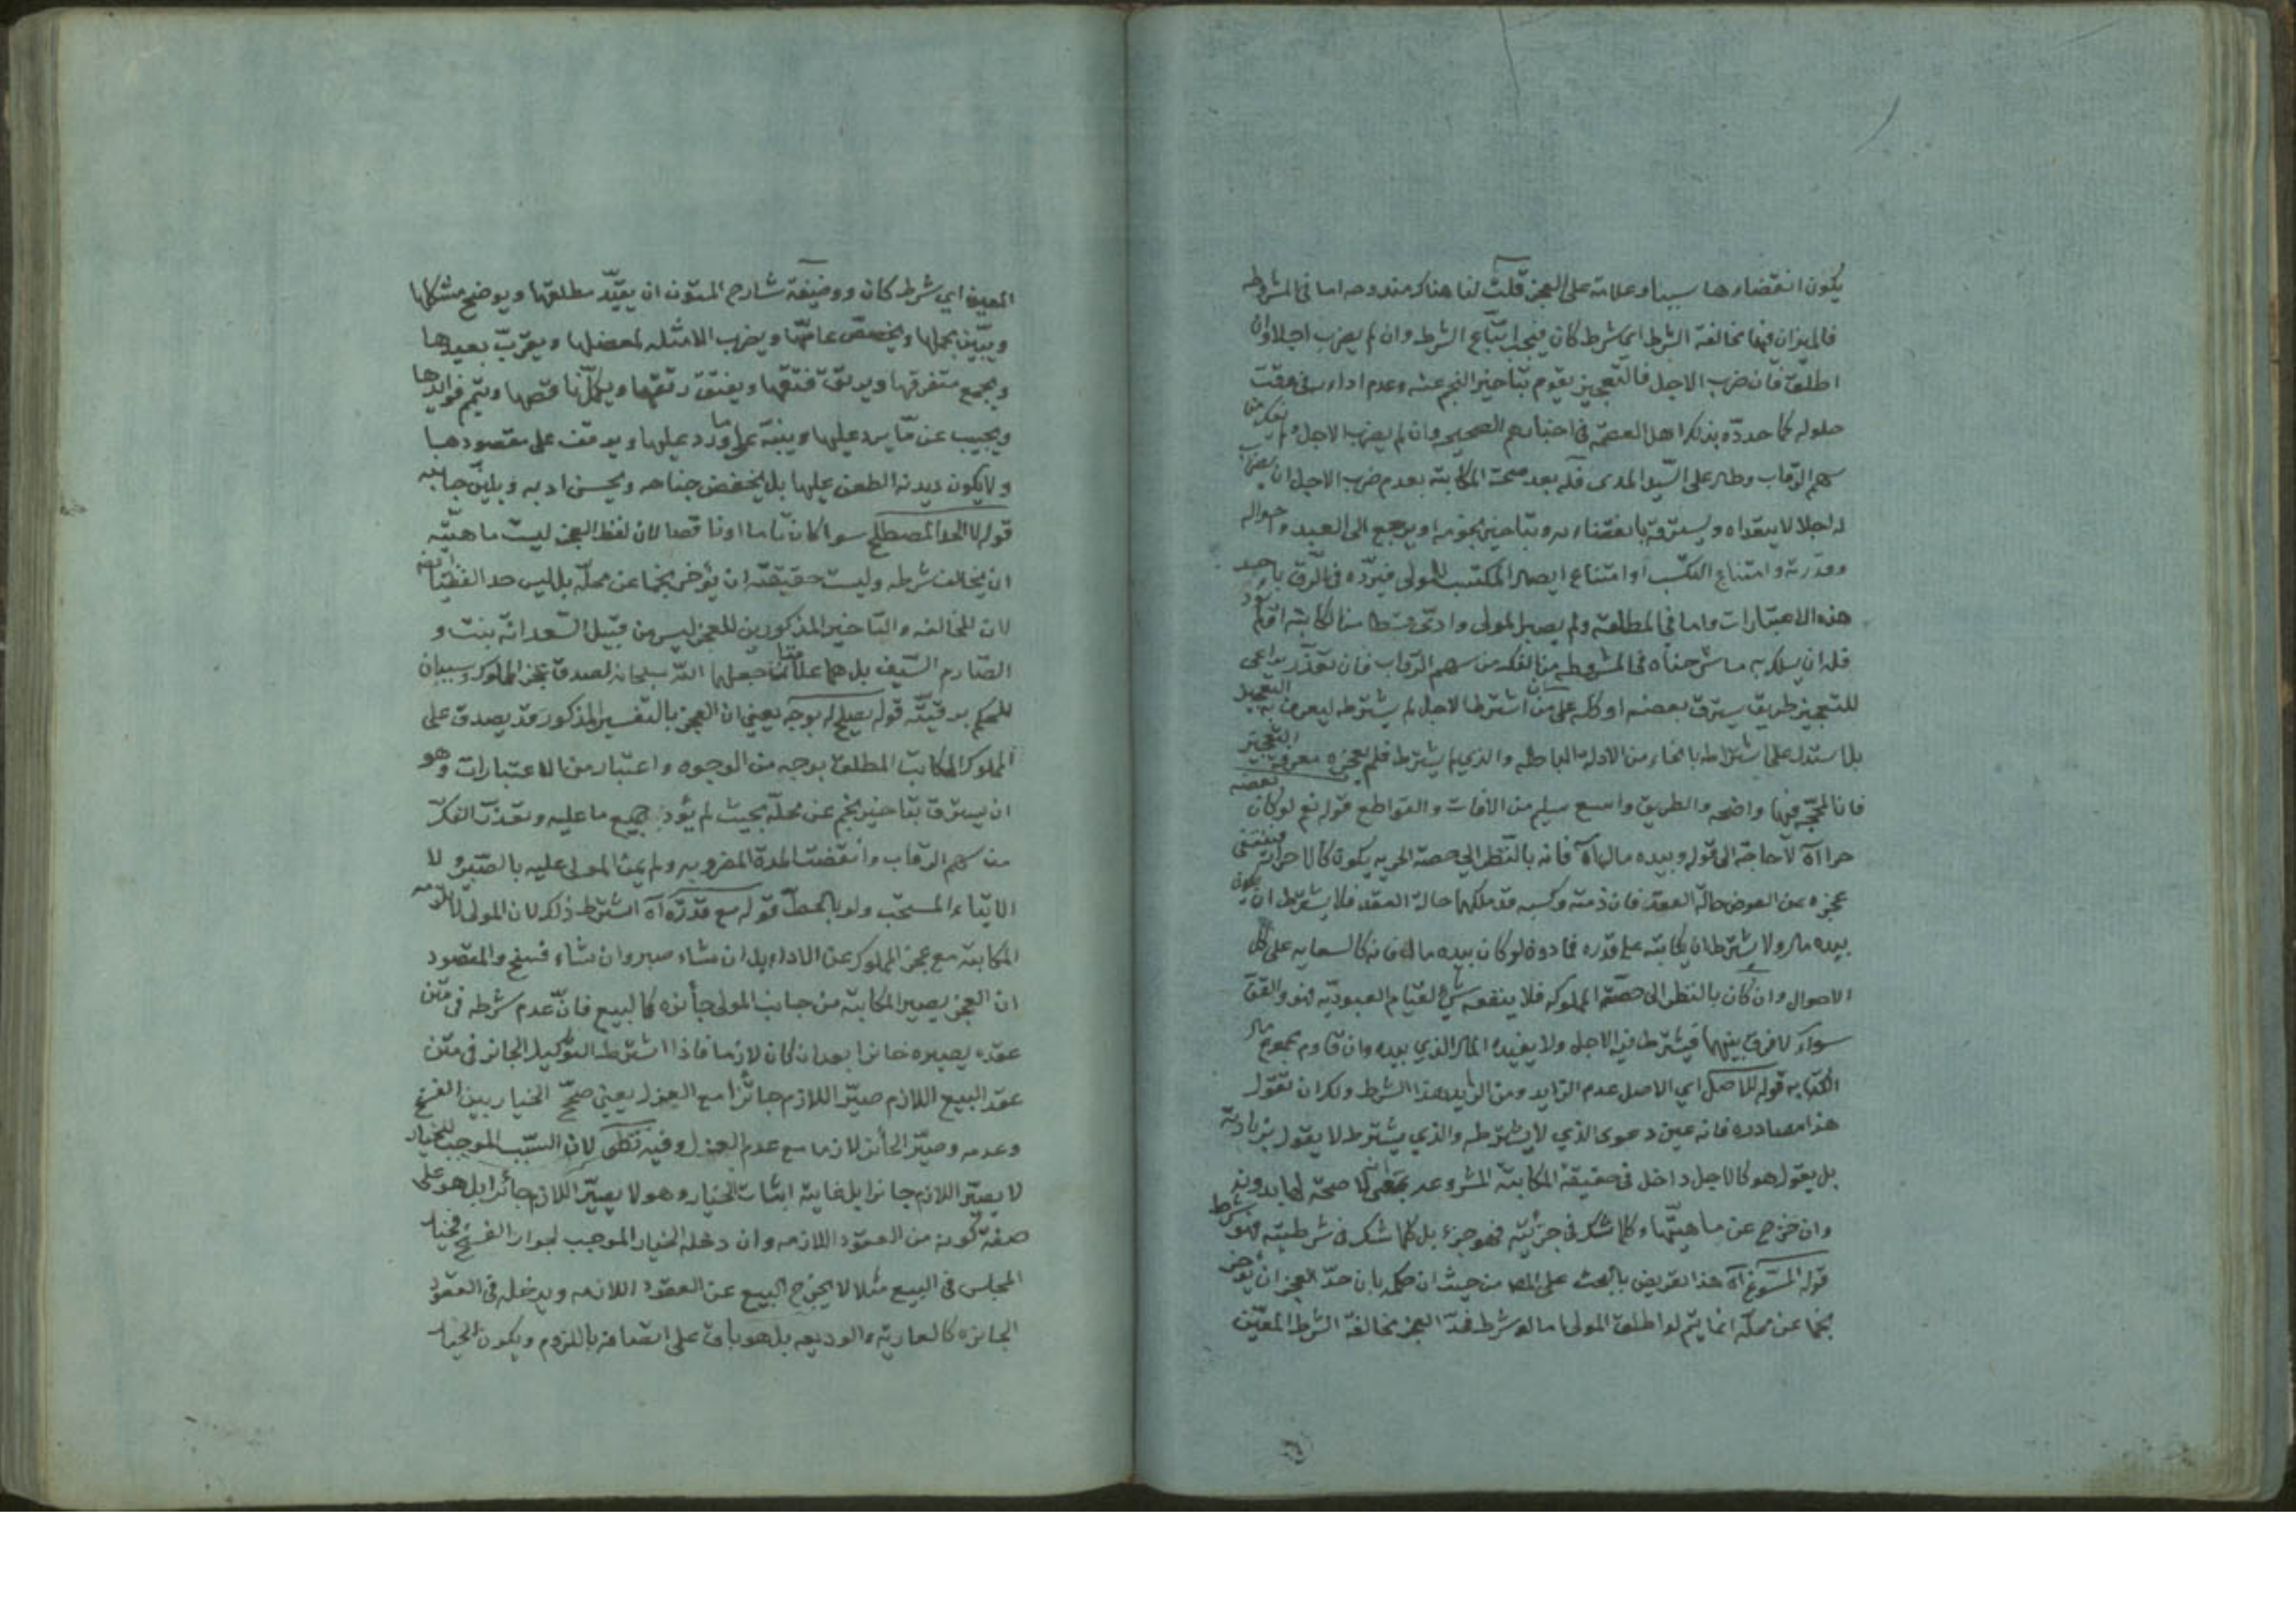 يكون انقضاوها سببا وعلامة على العجز قلت لنا هناك مندوحه اما فى المشروطه
فالميزان فيها مخالفة الشرط اى شرط كان فيجب اتباع الشرط وان لم يضرب اجلا وان
اطلق فان ضرب الاجل فالتعجيز يقوم بتاخير النجم عنه وعدم اداءه فى وقت
حلوله كما حدده بذلك اهل العصمة فى اخبارهم الصحيحه وان لم يضرب الاجل ولم يفك من
سهم الرقاب وطال على السيد المدى فله بعد صحة المكاتبة بعدم ضرب الاجل ان يضرب
له اجلا لا يتعداه ويسترقه بانقضاءه وبتاخير نجومه او يرجع الى العبد واحواله
وقدرته وامتناع التكسب او امتناع ايصال المكتسب للمولى فيرده فى الرق باحد
هذه الاعتبارات واما فى المطلقة ولم يصل لمولى وادى قسطا من الكتابة
فله ان يسلك به ما شرحناه فى المشروطه من الفك من سهم الرقاب فان تعذر
للتعجيز طريق يسترق بعضه او كله على من اشترط الاجل لم يشترطه ليعرف به التعجيل
بل استدل على اشتراطه بانحاء من الادلة الباطله والذى لم يشترط فلم يعجزه معرفة التعجيز
فان المحجة فيها واضحه والطريق واسع سليم من الافات والقواطع قوله نعم لو كان بعضه
حرا اه لا حاجة الى قوله وبيده مال اه فانه بالنظر الى حصة الحريه يكون كالاحرار فينتفى
عجزه عن العوض حالة العقد فان ذمته وكسبه قد ملكها حالة العقد فلا يشترط ان يكون
بيده مال ولا يشترط ان يكاتبه على قدره فما دون لو كان بيده مال فانه كالسعايه على كل
الاحوال وان كان بالنظر الى حصة المملوكه فلا ينفعه شئ لقيام العبودية فهو والقن
سواء لا فرق بينهما فيشترط فيه الاجل ولا يفيده المال الذي بيده وان قاوم مجموع مال
الكتابه قوله للاصل اى الاصل عدم الزايد ومن الزايد هذا الشرط ولك ان تقول
هذا مصادره فانه عين دعوى الذي لا يشترطه والذي يشترط لا يقول بزيادته
بل يقول هو كالاجل داخل فى حقيقة المكاتبة المشروعه بمعنى انه لا صحة لها بدونه
وان خرج عن ماهيتها وكلما شك فى جزئيته فهو جزء بل كلما شك فى شرطيته فهو شرط
قوله المسوغ اه هذا تعريض بالبحث على المص من حيث ان حكمه بان حد العجز ان يؤخر
نجما عن محله انما يتم لو اطلق المولى اما لو شرط فحد العجز مخالفة الشرط المعين
المعين اى شرط كان ووضيفة شارح المتون ان يقيد مطلقها ويوضح مشكلها
ويبين مجملها ويخصص عامها ويضرب الامثله لمعضلها ويقرب بعيدها
ويجمع متفرقها ويرتق فتقها ويفتق رتقها ويكمل ناقصها ويتمم فوائدها
ويجيب عن ما يرد عليها وينبه على ما ورد عليها ويوقف على مقصودها
ولا يكون ديدنه الطعن عليها بل يخفض جناحه ويحسن ادبه ويلين جانبه
قوله لا الحد المصطلح سوا كان تاما او ناقصا لان لفظ العجز ليست ماهيته
ان يخالف شرطه وليست حقيقته ان يؤخر نجما عن محله بل ليس حدا لفظيا
لان المخالفه والتاخير المذكورين للعجز ليس من قبيل السعدانة نبت و
الصارم السيف بل هما علامتان جعلهما الله سبحانه لصدق عجز المملوك وسببان
للحكم برقيته قوله يصلح له بوجه يعنى ان العجز بالتفسير المذكور قد يصدق على
المملوك المكاتب المطلق بوجه من الوجوه واعتبار من الاعتبارات وهو
ان يسترق بتاخير نجم عن محله بحيث لم يؤد جميع ما عليه وتعذر الفك
من سهم الرقاب وانقضت المدة المضروبه ولم يمن المولى عليه بالصبر ولا
الايتاء المستحب ولو بالحط قوله مع قدرته اه اشترط ذلك لان المولى لا تلزمه
المكاتبة مع عجز المملوك عن الاداء بل ان شاء صبر وان شاء فسخ والمقصود
ان العجز يصير المكاتبة من جانب المولى جائزه كالبيع فان عدم شرطه فى متن
عقده يصيره جائزا بعد ان كان لازما فاذا اشترط التوكيل الجائز فى متن
عقد البيع اللازم صير اللازم جائزا مع العزل يعنى صح الخيار بين الفسخ
وعدمه وصير الجائز لازما مع عدم العزل وفيه نظر لان السبب الموجب للخيار
لا يصير اللازم جائزا بل غايته اثبات الخيار وهو لا يصير اللازم جائزا بل هو على
صفة كونه من العقود اللازمه وان دخله الخيار الموجب لجواز الفسخ فخيار
المجلس فى البيع مثلا لا يخرج البيع عن العقود اللازمه ويدخله فى العقود
الجائزه كالعارية والوديعه بل هو باق على اتصافه باللزوم ويكون الخيار